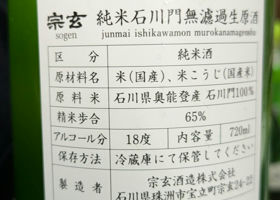 宗玄 純米石川門無濾過生原酒
sogen junmai ishikawamon murokanamagenshu
区分 純米酒
原材料名 米(国産)、米こうじ(国産米)
原料米 石川県奥能登産 石川門100%
精米歩合 65%
アルコール分 18度 内容量 720ml
保存方法 冷蔵庫にて保管してください
製造者 宗玄酒造株式会社
石川県珠洲市宝立町宗玄24-22